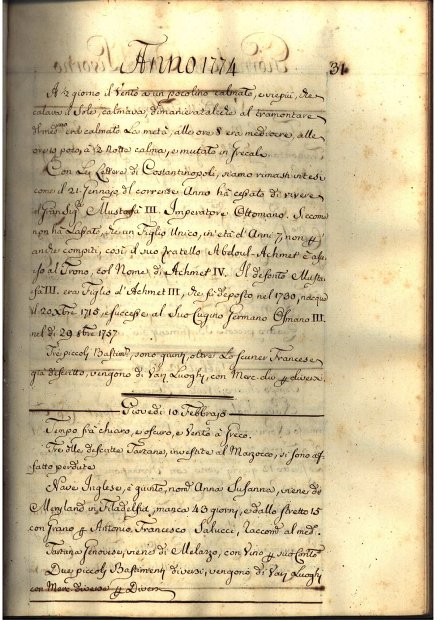 Anno 1774
31
A ½ giorno il Vento à un pocolino calmato, e viepiù, che
calava il Sole, calmava; dimanieratalche al tramontare
era calmato La metà, alle ore 8 era mediocre, alle
ore 10 poco, à ½ Notte calma, e mutato in Grecale.
Con Le Lettere di Costantinopoli, siamo rimasti intesi
come il 21. Gennajo del corrente Anno hà cessato di vivere
il Gran Sig.re Mustafà III. Imperatore Ottomano. Siccome
non hà Lasciato, che un Figlio Unico, in età d'Anni 7, non
anche compiti, così il suo fratello Abdoul-Achmet è asce-
so al Trono, col Nome di Achmet IV. Il defonto Musta-
fà III. era Figlio d'Achmet III, che fù deposto nel 1730, nacque
il 20 Xbre 1715, e successe al Suo Cugino Germano Osmano III.
nel dì 29 8bre 1757.
Tre piccoli Bastim.ti, sono giunti, oltre Lo Scuner Francese
già descritto, vengono di Varj Luoghi, con Merc. div.
Giovedì 10 Febbrajo
Tempo frà chiaro, e oscuro, e Vento à Greco.
Tre dlle descritte Tartane, investite al Marzocco, si sono af-
fatto perdute.
Nave Inglese, è giunta, nom.a Anna Susanna, viene da
Meryland in Filadelfia, manca 43 giorni, e dallo Stretto 15
con Grano Antonio Francesco Salucci, Raccom. al med.
Tartana Genovese, viene di Melazzo, con Vino suo Conto
Due piccoli Bastimenti diversi, vengono di Varj Luoghi,
con Merc. diverse Diversi